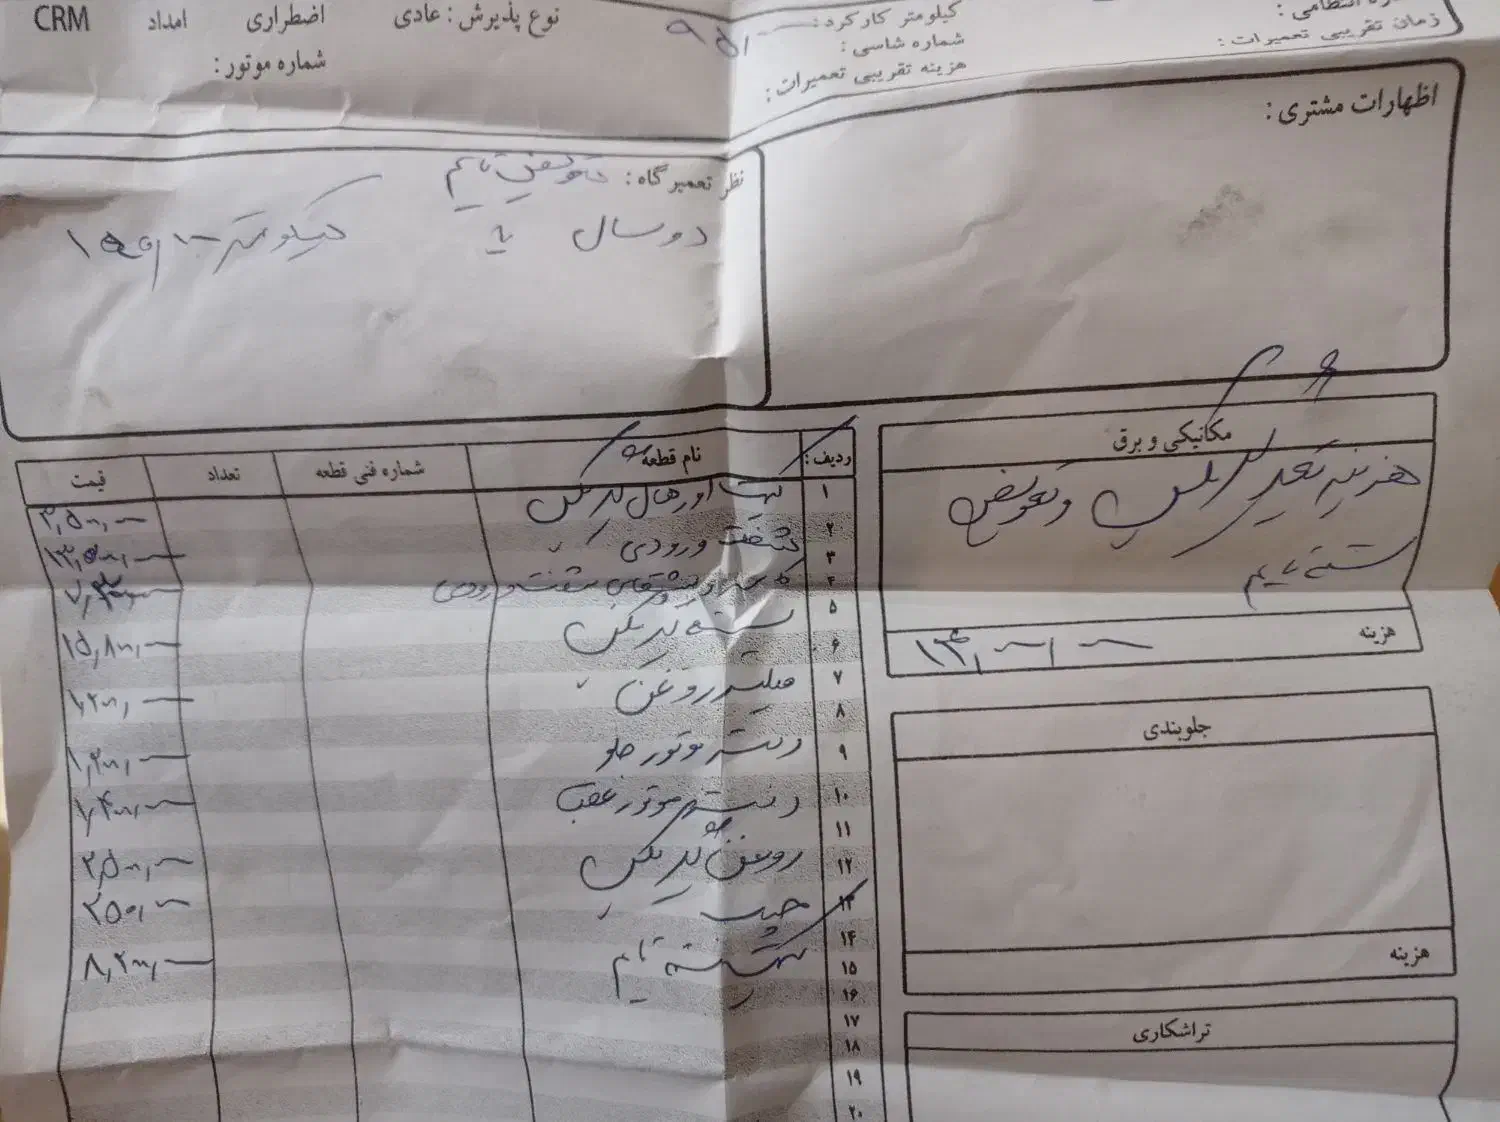 زمان تقریبی تعمیرات :
کیلومتر کارکرد :
شماره شاسی :
هزینه تقریبی تعمیرات :
نوع پذیرش : عادی اضطراری امداد CRM
شماره موتور :
اظهارات مشتری :
نظر تعمیرگاه : تعویض تایم
دو سال یا کیلومتر
مکانیکی و برق
هزینه تعمیر گیربکس و تعویض
تسمه تایم
هزینه ۱۳,۰۰۰,۰۰۰
جلوبندی
هزینه
تراشکاری
ردیف : نام قطعه شماره فنی قطعه تعداد قیمت
۱ کیت اورهال گیربکس ۳,۵۰۰,۰۰۰
۲
شفت ورودی ۱۳,۵۰۰,۰۰۰
۳
۴ شفت ورودی
۵
پوسته گیربکس ۱۵,۸۰۰,۰۰۰
۶
۷ فیلتر روغن ۱,۲۰۰,۰۰۰
۸
۹ دسته موتور جلو ۱,۲۰۰,۰۰۰
۱۰ دسته موتور عقب ۱,۴۰۰,۰۰۰
۱۱
۱۲ روغن گیربکس ۲,۵۰۰,۰۰۰
۱۳ چسب ۲۵۰,۰۰۰
۱۴
۱۵ کیت تسمه تایم ۸,۲۰۰,۰۰۰
۱۶
۱۷
۱۸
۱۹
۲۰